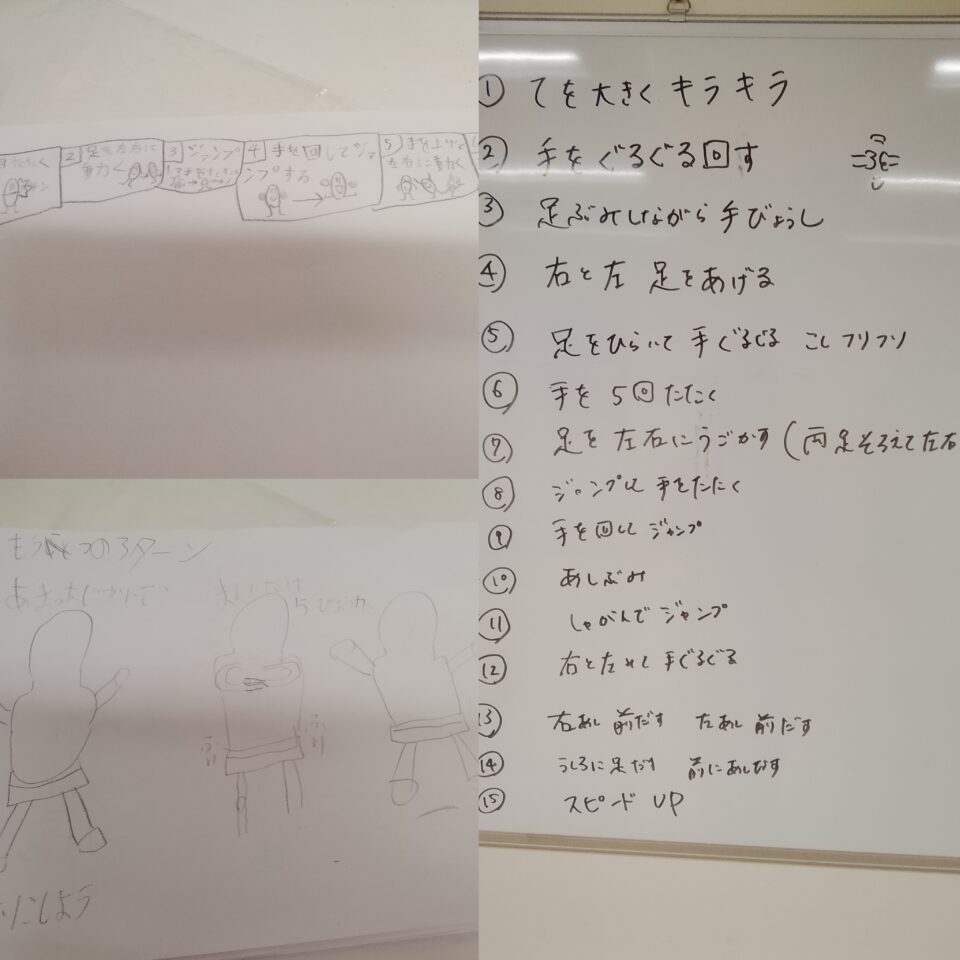 2 足を左右に
動かく
3 ジャンプ
4 手を回してジャ
ンプする
5 手を上げて
左右に動く
つの3ターン
にしよう
① てを大きく キラキラ
② 手をぐるぐる回す
③ 足ぶみしながら 手びょうし
④ 右と左 足をあげる
⑤ 足をひらいて 手ぐるぐる こしフリフリ
⑥ 手を 5回 たたく
⑦ 足を 左右にうごかす(両足そろえて左右
⑧ ジャンプして 手をたたく
⑨ 手を回して ジャンプ
⑩ あしぶみ
⑪ しゃがんで ジャンプ
⑫ 右と左 手ぐるぐる
⑬ 右あし 前だす 左あし 前だす
⑭ うしろに足だす 前にあしだす
⑮ スピード UP